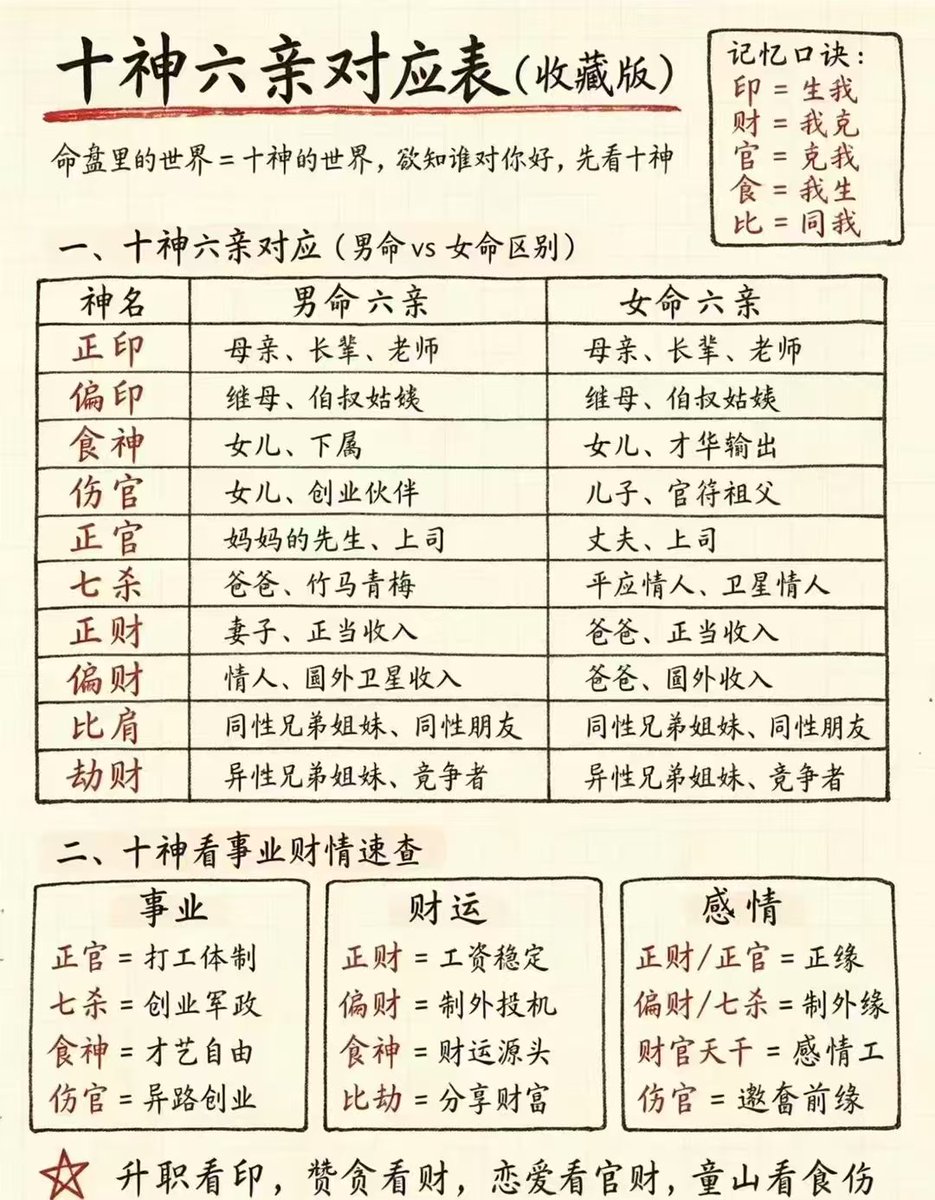 十神六亲对应表(收藏版)
命盘里的世界=十神的世界，欲知谁对你好，先看十神
记忆口诀：
印 = 生我
财 = 我克
官 = 克我
食 = 我生
比 = 同我
一、十神六亲对应（男命 vs 女命区别）
神名 男命六亲 女命六亲
正印 母亲、长辈、老师 母亲、长辈、老师
偏印 继母、伯叔姑姨 继母、伯叔姑姨
食神 女儿、下属 女儿、才华输出
伤官 女儿、创业伙伴 儿子、官符祖父
正官 妈妈的先生、上司 丈夫、上司
七杀 爸爸、竹马青梅 平应情人、卫星情人
正财 妻子、正当收入 爸爸、正当收入
偏财 情人、圆外卫星收入 爸爸、圆外收入
比肩 同性兄弟姐妹、同性朋友 同性兄弟姐妹、同性朋友
劫财 异性兄弟姐妹、竞争者 异性兄弟姐妹、竞争者
二、十神看事业财情速查
事业
正官 = 打工体制
七杀 = 创业军政
食神 = 才艺自由
伤官 = 异路创业
财运
正财 = 工资稳定
偏财 = 制外投机
食神 = 财运源头
比劫 = 分享财富
感情
正财/正官 = 正缘
偏财/七杀 = 制外缘
财官天干 = 感情工
伤官 = 邀奋前缘
升职看印，赞贪看财，恋爱看官财，童山看食伤